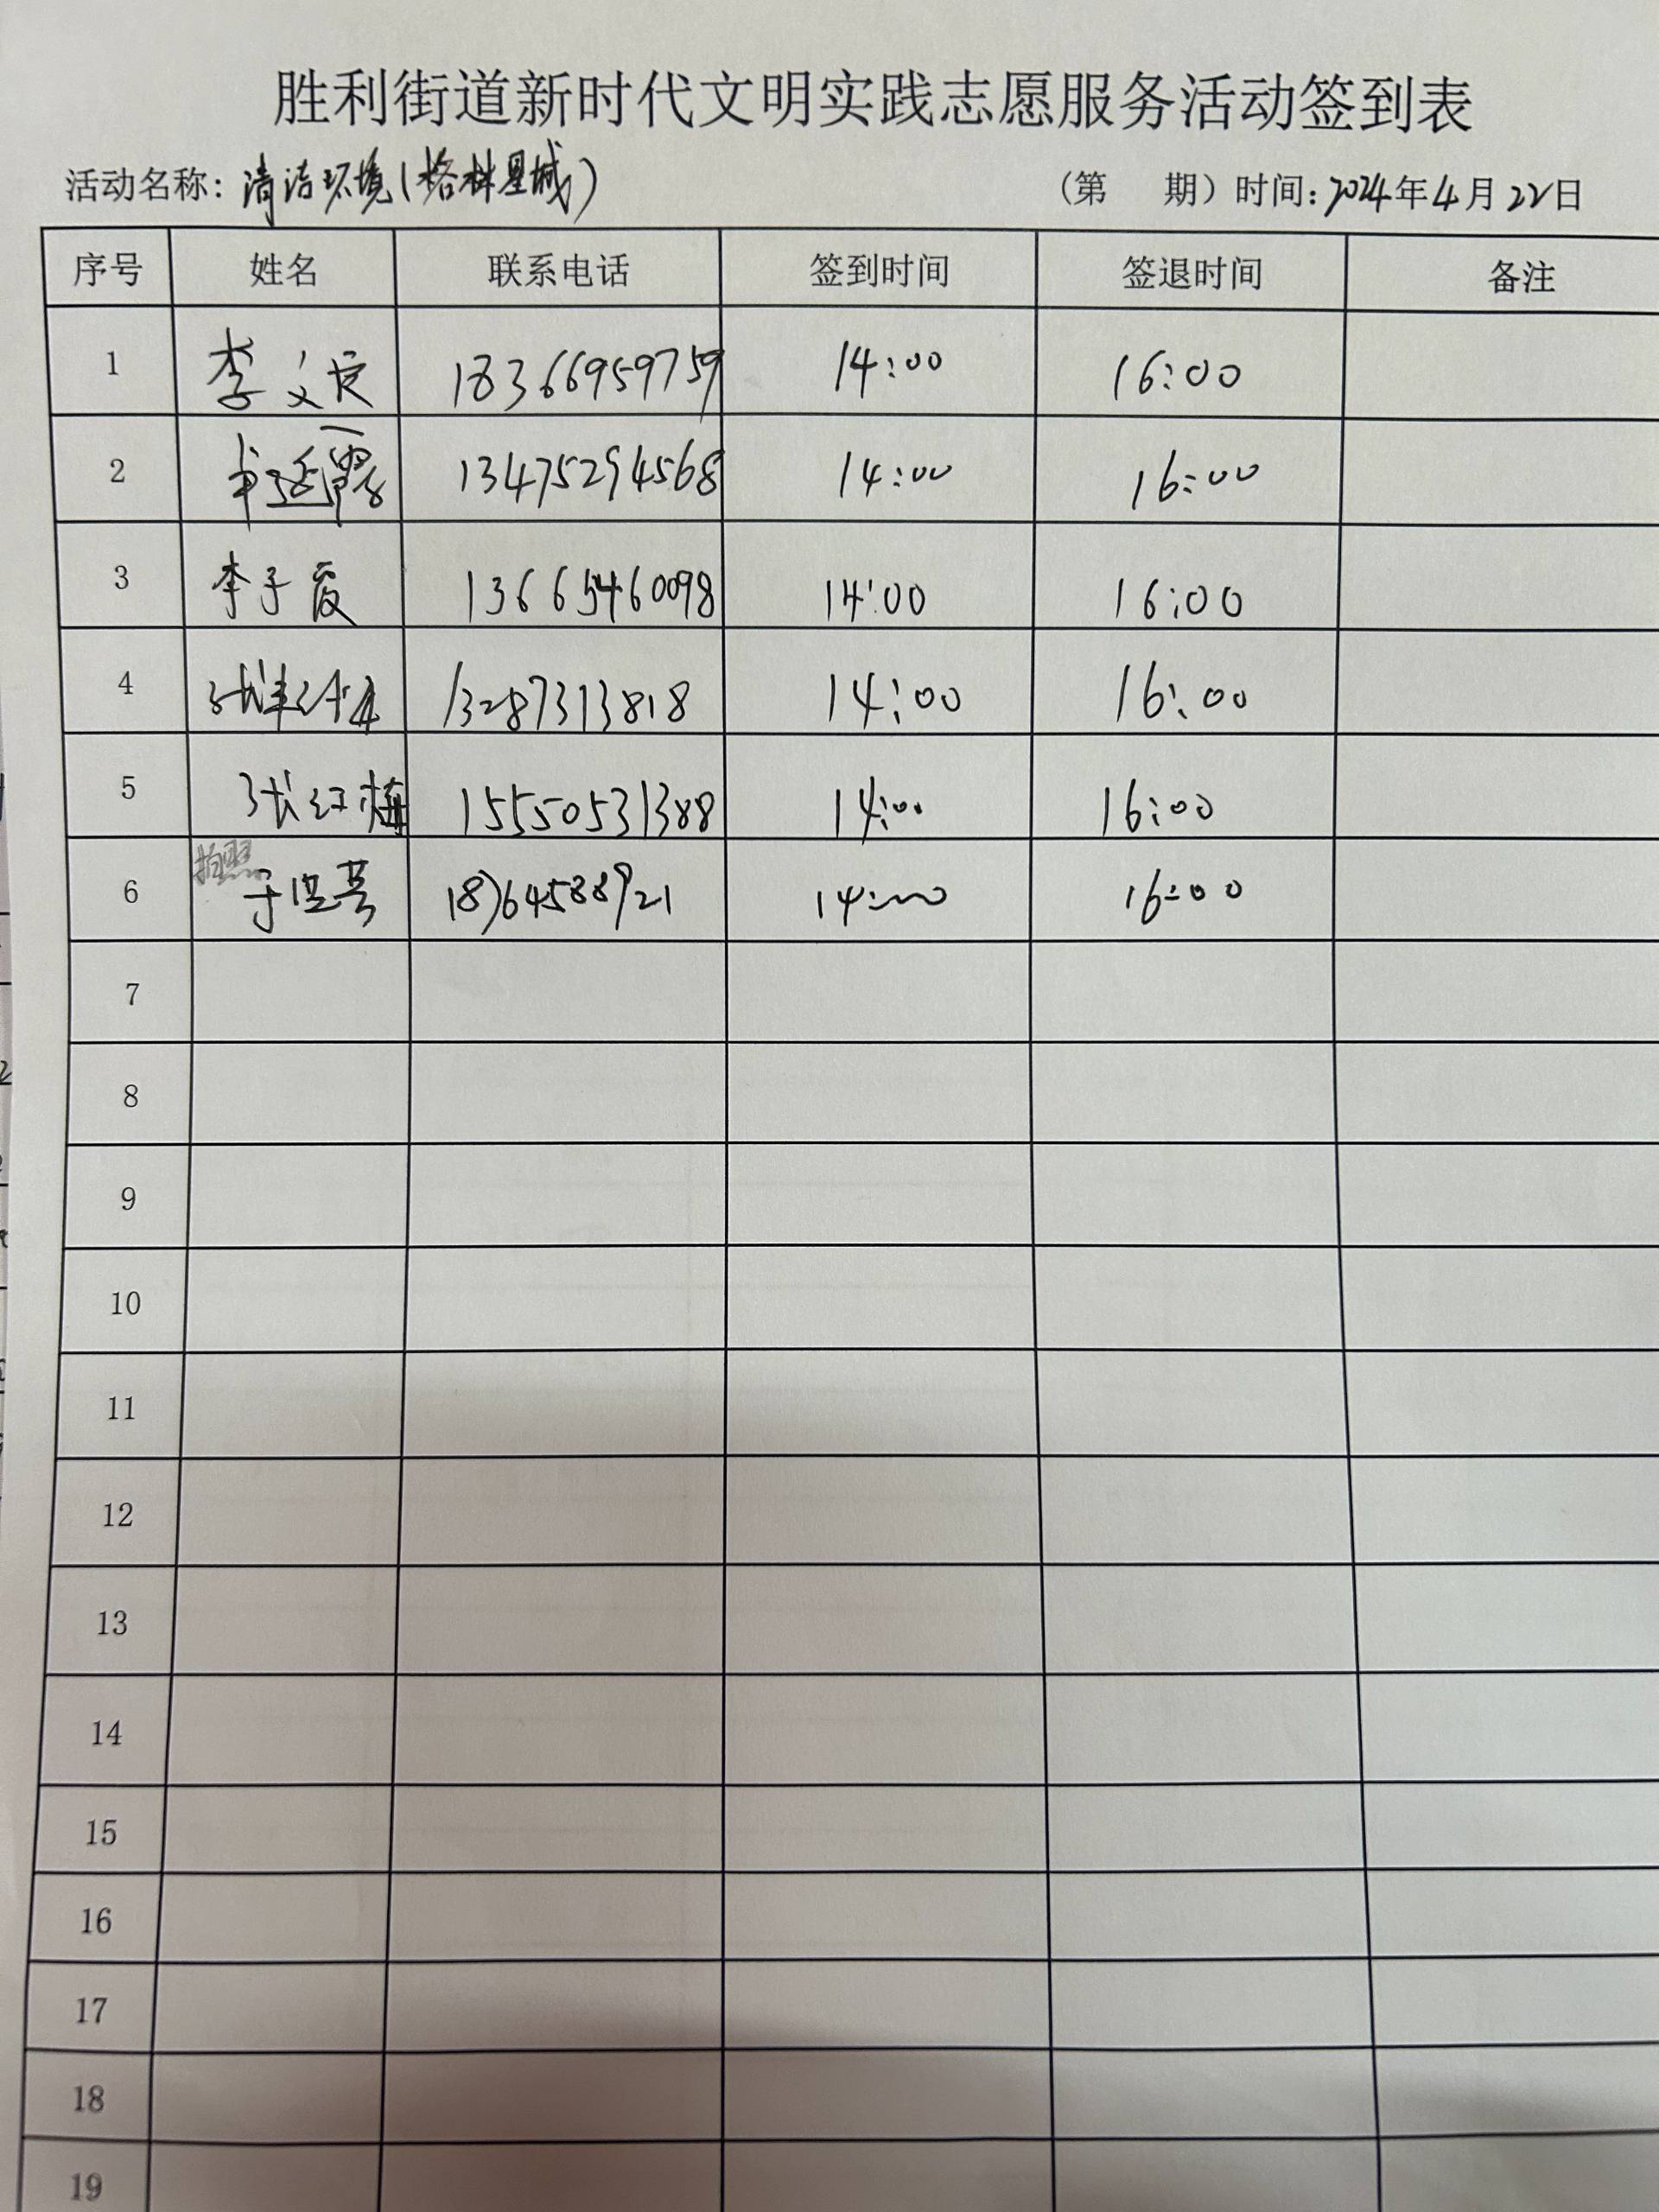 胜利街道新时代文明实践志愿服务活动签到表
活动名称：清洁环境（格林星城） （第 期）时间：2024年4月22日
序号 姓名 联系电话 签到时间 签退时间 备注
1 李 18366959759 14:00 16:00
2 13475294568 14:00 16:00
3 李子霞 13665460098 14:00 16:00
4 13287313818 14:00 16:00
5 张红梅 15550531388 14:00 16:00
拍照
6 于 18764588921 14:00 16:00
7
8
9
10
11
12
13
14
15
16
17
18
19